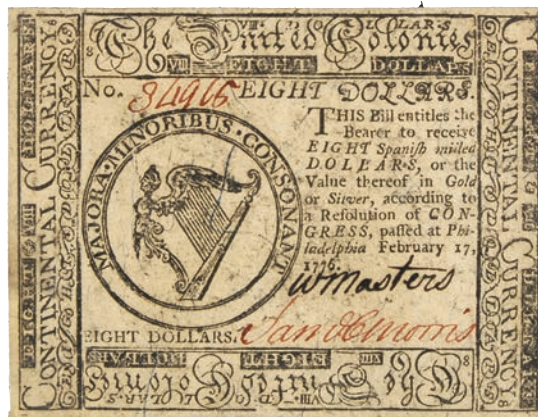 The United Colonies
VIII EIGHT DOLLARS
No. 34916 EIGHT DOLLARS.
THIS Bill entitles the
Bearer to receive
EIGHT Spaniſh milled
DOLLARS, or the
Value thereof in Gold
or Silver, according to
a Reſolution of CON-
GRESS, paſſed at Phi-
ladelphia February 17,
1776.
MAJORA · MINORIBUS · CONSONANT
WMasters
Sam C Morris
EIGHT DOLLARS.
CONTINENTAL CURRENCY
CONTINENTAL CURRENCY
DOLLARS EIGHT VIII
The United Colonies